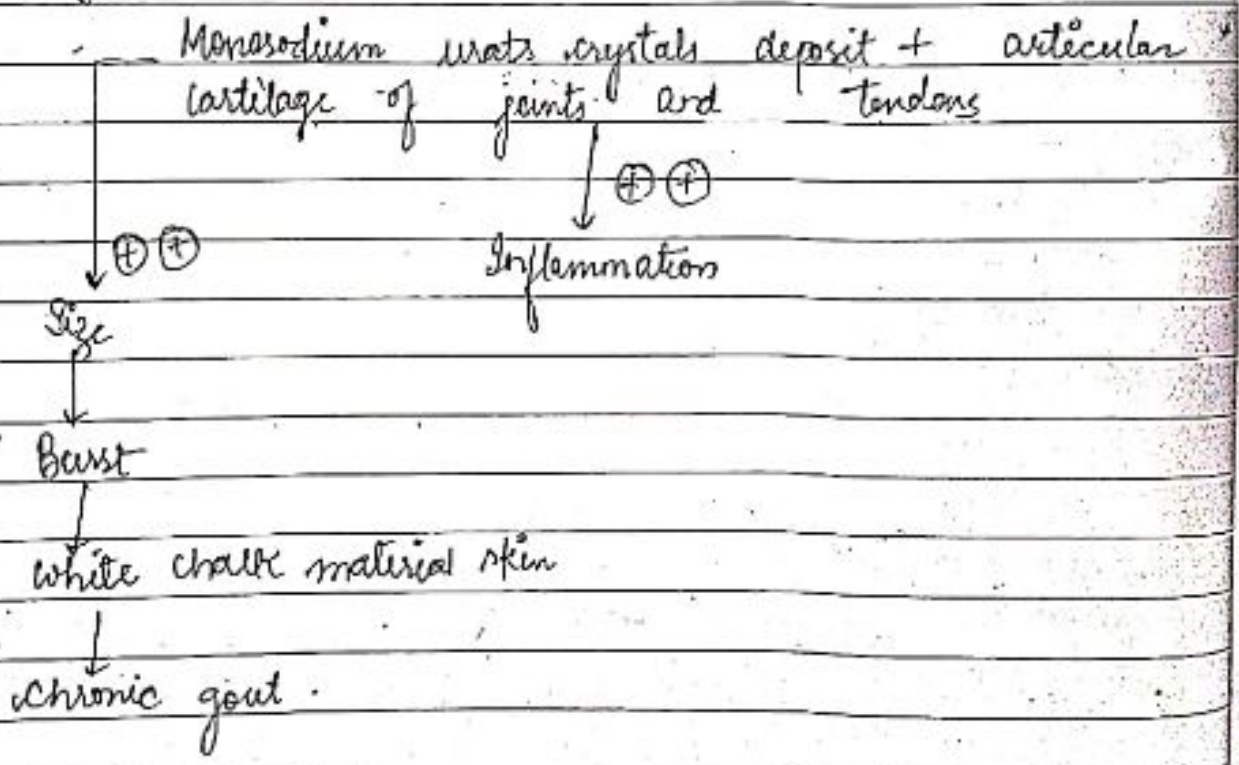 Monosodium urats crystals deposit + articular
cartilage of joints and tendons
⊕ ⊕
Inflammation
⊕ ⊕
Size
Burst
white chalk material skin
chronic gout.